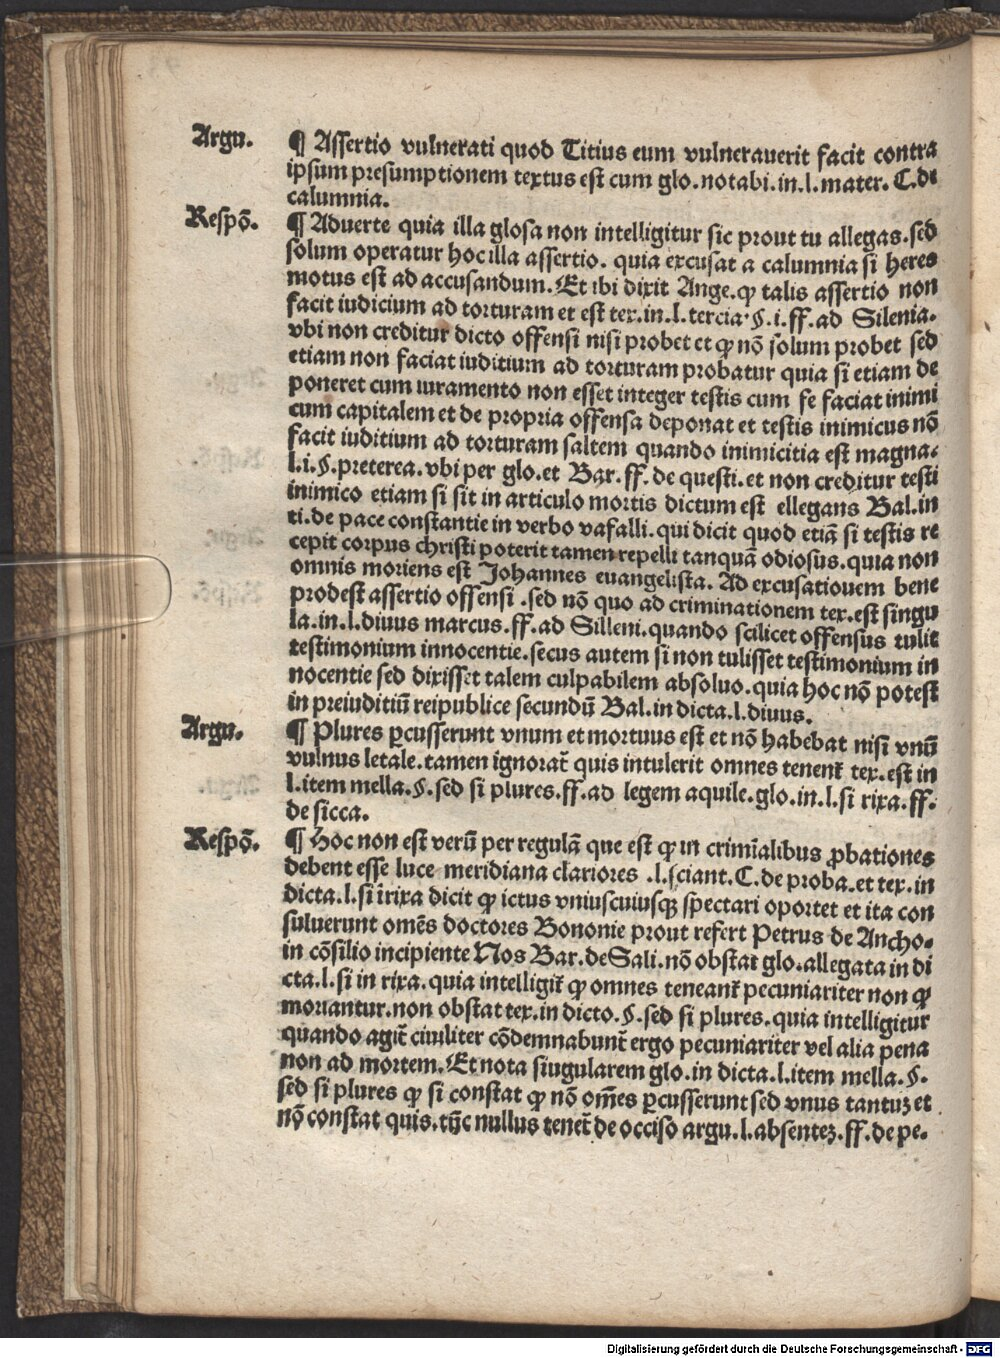 Argu.
¶ Assertio vulnerati quod Titius eum vulnerauerit facit contra
ipsum presumptionem textus est cum glo.notabi.in.l.mater. C.de
calumnia.
Respõ.
¶ Aduerte quia illa glosa non intelligitur sic prout tu allegas.sed
solum operatur hoc illa assertio. quia excusat a calumnia si heres
motus est ad accusandum. Et ibi dixit Ange.ꝙ talis assertio non
facit iudicium ad torturam et est tex.in.l.tercia.§.i.ff.ad Silenia.
vbi non creditur dicto offensi nisi probet et ꝙ nõ solum probet sed
etiam non faciat iuditium ad torturam probatur quia si etiam de
poneret cum iuramento non esset integer testis cum se faciat inimi
cum capitalem et de propria offensa deponat et testis inimicus nõ
facit iuditium ad torturam saltem quando inimicitia est magna.
l.i.§.preterea.vbi per glo.et Bar.ff.de questi.et non creditur testi
inimico etiam si sit in articulo mortis dictum est ellegans Bal.in
ti.de pace constantie in verbo vafalli.qui dicit quod etiã si testis re
cepit corpus christi poterit tamen repelli tanquã odiosus.quia non
omnis moriens est Johannes euangelista. Ad excusatiouem bene
prodest assertio offensi .sed nõ quo ad criminationem tex.est singu
la.in.l.diuus marcus.ff.ad Silleni.quando scilicet offensus tulit
testimonium innocentie.secus autem si non tulisset testimonium in
nocentie sed dixisset talem culpabilem absoluo.quia hoc nõ potest
in preiuditiũ reipublice secundũ Bal.in dicta.l.diuus.
Argu.
¶ Plures ꝑcusserunt vnum et mortuus est et nõ habebat nisi vnũ
vulnus letale.tamen ignorat᷑ quis intulerit omnes tenent᷑ tex.est in
l.item mella.§.sed si plures.ff.ad legem aquile.glo.in.l.si rixa.ff.
de sicca.
Respõ.
¶ Hoc non est verũ per regulã que est ꝙ in crimĩalibus ꝓbationes
debent esse luce meridiana clariores .l.sciant.C.de proba.et tex.in
dicta.l.si ĩrixa dicit ꝙ ictus vniuscuiusqꝫ spectari oportet et ita con
suluerunt omẽs doctores Bononie prout refert Petrus de Ancho.
in cõsilio incipiente Nos Bar.deSali.nõ obstat glo.allegata in di
cta.l.si in rixa.quia intelligit᷑ ꝙ omnes teneant᷑ pecuniariter non ꝙ
moriantur.non obstat tex.in dicto.§.sed si plures.quia intelligitur
quando agit᷑ ciuiliter cõdemnabunt᷑ ergo pecuniariter vel alia pena
non ad mortem. Et nota siugularem glo.in dicta.l.item mella.§.
sed si plures ꝙ si constat ꝙ nõ om̃es ꝑcusserunt sed vnus tantuꝫ et
nõ constat quis.tũc nullus tenet᷑ de occiso argu.l.absenteꝫ.ff.de pe.
Digitalisierung gefördert durch die Deutsche Forschungsgemeinschaft - DFG